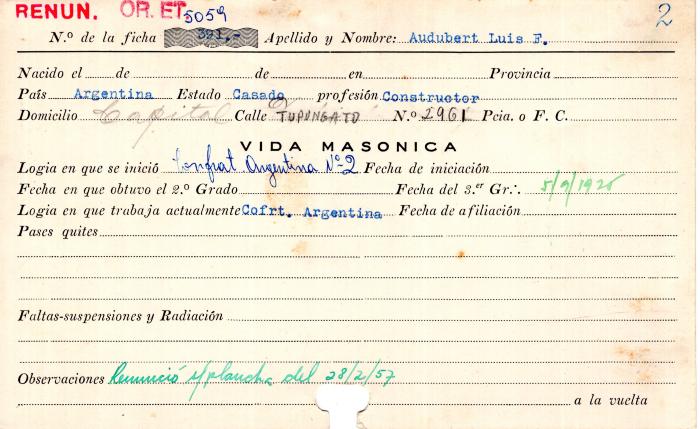 RENUN. OR. ET. 5059 2
N.º de la ficha 391,- Apellido y Nombre: Audubert Luis F.
Nacido el de de en Provincia
País Argentina Estado Casado profesión Constructor
Domicilio Capital Calle TUPUNGATO N.º 2961 Pcia. o F. C.
VIDA MASONICA
Logia en que se inició Confrat Argentina Nº 2 Fecha de iniciación
Fecha en que obtuvo el 2.º Grado Fecha del 3.er Gr∴ 5/9/1925
Logia en que trabaja actualmente Cofrt. Argentina Fecha de afiliación
Pases quites
Faltas-suspensiones y Radiación
Observaciones Renunció s/plancha del 28/2/57
a la vuelta